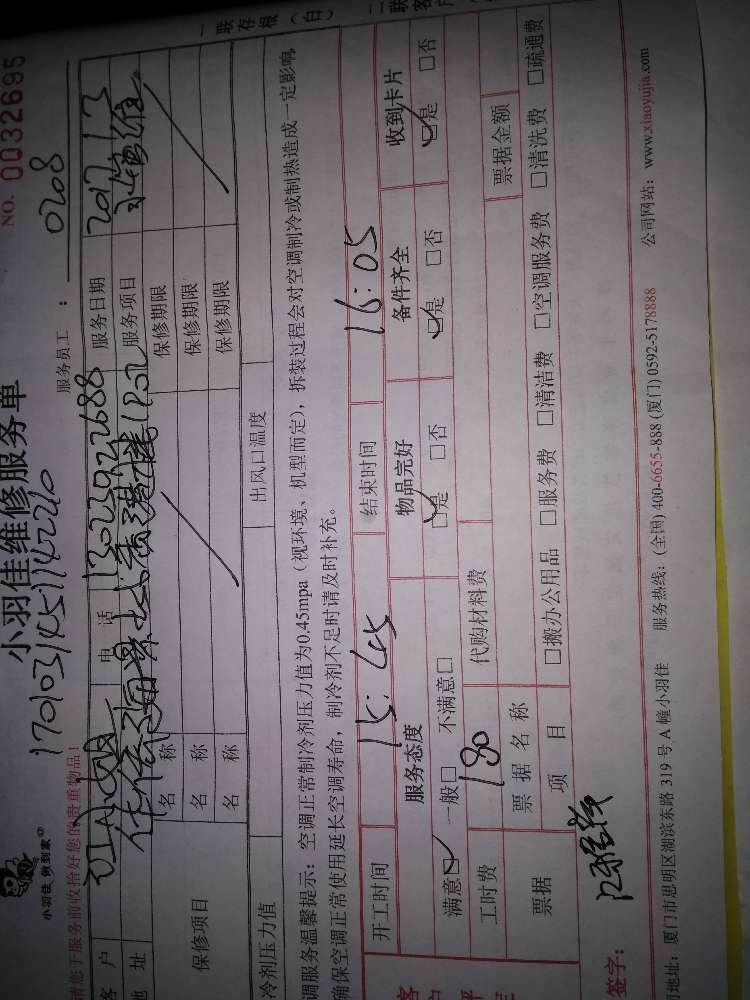 小羽佳 例到家
小羽佳维修服务单
NO. 0032695
17010314511142210
服务员工： 0208
请您于服务前收拾好您的贵重物品！
客 户 电 话 服务日期 2017.1.3
地 址 服务项目
保修项目 名 称 保修期限
名 称 保修期限
名 称 保修期限
冷剂压力值 出风口温度
调服务温馨提示：空调正常制冷剂压力值为0.45mpa（视环境、机型而定），拆装过程会对空调制冷或制热造成一定影响，
确保空调正常使用延长空调寿命，制冷剂不足时请及时补充。
开工时间 15:45 结束时间 16:05
服务态度 物品完好 备件齐全 收到卡片
满意☑ 一般□ 不满意□ ☑是 □否 ☑是 □否 ☑是 □否
工时费 180 代购材料费
票据 票据名称 票据金额
项 目 □搬办公用品 □服务费 □清洁费 □空调服务费 □清洗费 □疏通费
签字：
地址：厦门市思明区湖滨东路 319 号 A 幢小羽佳 服务热线：(全国) 400-6655-888 (厦门) 0592-5178888 公司网站：www.xiaoyujia.com
一联存根（白）
二联客户